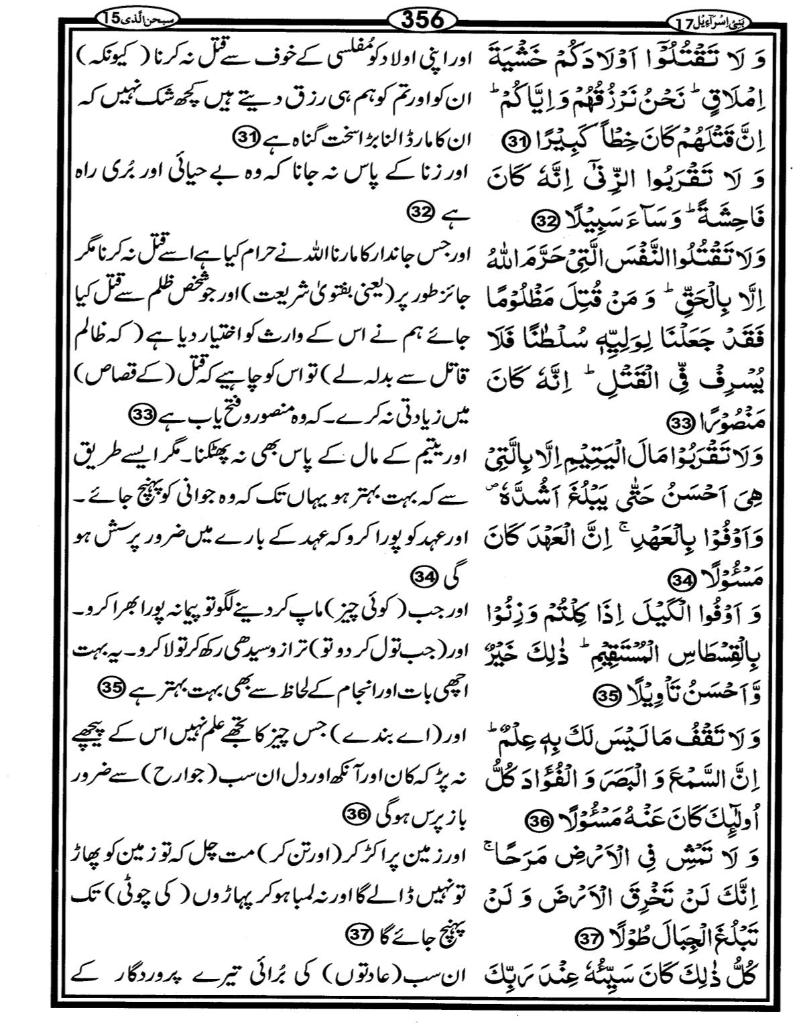 بَنِیْٓ اِسْرَآءِیْل 17
356
سبحٰن الّذی 15
وَ لَا تَقْتُلُوْۤا اَوْلَادَكُمْ خَشْیَةَ
اِمْلَاقٍ ؕ نَحْنُ نَرْزُقُهُمْ وَ اِیَّاكُمْ ؕ
اِنَّ قَتْلَهُمْ كَانَ خِطْاً كَبِیْرًا 31
وَ لَا تَقْرَبُوا الزِّنٰۤی اِنَّهٗ كَانَ
فَاحِشَةً ؕ وَ سَآءَ سَبِیْلًا 32
وَ لَا تَقْتُلُوا النَّفْسَ الَّتِیْ حَرَّمَ اللّٰهُ
اِلَّا بِالْحَقِّ ؕ وَ مَنْ قُتِلَ مَظْلُوْمًا
فَقَدْ جَعَلْنَا لِوَلِیِّهٖ سُلْطٰنًا فَلَا
یُسْرِفْ فِّی الْقَتْلِ ؕ اِنَّهٗ كَانَ
مَنْصُوْرًا 33
وَ لَا تَقْرَبُوْا مَالَ الْیَتِیْمِ اِلَّا بِالَّتِیْ
هِیَ اَحْسَنُ حَتّٰی یَبْلُغَ اَشُدَّهٗ ۪
وَ اَوْفُوْا بِالْعَهْدِ ۚ اِنَّ الْعَهْدَ كَانَ
مَسْـُٔوْلًا 34
وَ اَوْفُوا الْكَیْلَ اِذَا كِلْتُمْ وَ زِنُوْا
بِالْقِسْطَاسِ الْمُسْتَقِیْمِ ؕ ذٰلِكَ خَیْرٌ
وَّ اَحْسَنُ تَاْوِیْلًا 35
وَ لَا تَقْفُ مَا لَیْسَ لَكَ بِهٖ عِلْمٌ ؕ
اِنَّ السَّمْعَ وَ الْبَصَرَ وَ الْفُؤَادَ كُلُّ
اُولٰٓئِكَ كَانَ عَنْهُ مَسْـُٔوْلًا 36
وَ لَا تَمْشِ فِی الْاَرْضِ مَرَحًا ۚ
اِنَّكَ لَنْ تَخْرِقَ الْاَرْضَ وَ لَنْ
تَبْلُغَ الْجِبَالَ طُوْلًا 37
كُلُّ ذٰلِكَ كَانَ سَیِّئُهٗ عِنْدَ رَبِّكَ
اور اپنی اولاد کو مُفلسی کے خوف سے قتل نہ کرنا ( کیونکہ )
ان کو اور تم کو ہم ہی رزق دیتے ہیں کچھ شک نہیں کہ
ان کا مار ڈالنا بڑا سخت گناہ ہے 31
اور زنا کے پاس نہ جانا کہ وہ بے حیائی اور بُری راہ
ہے 32
اور جس جاندار کا مارنا اللہ نے حرام کیا ہے اسے قتل نہ کرنا مگر
جائز طور پر (یعنی بفتویٰ شریعت) اور جو شخص ظلم سے قتل کیا
جائے ہم نے اس کے وارث کو اختیار دیا ہے ( کہ ظالم
قاتل سے بدلہ لے ) تو اس کو چاہیے کہ قتل (کے قصاص)
میں زیادتی نہ کرے۔ کہ وہ منصور و فتح یاب ہے 33
اور یتیم کے مال کے پاس بھی نہ پھٹکنا۔ مگر ایسے طریق
سے کہ بہت بہتر ہو یہاں تک کہ وہ جوانی کو پہنچ جائے۔
اور عہد کو پورا کرو کہ عہد کے بارے میں ضرور پرسش ہو
گی 34
اور جب ( کوئی چیز ) ماپ کر دینے لگو تو پیمانہ پورا بھرا کرو۔
اور (جب تول کر دو تو) ترازو سیدھی رکھ کر تولا کرو۔ یہ بہت
اچھی بات اور انجام کے لحاظ سے بھی بہت بہتر ہے 35
اور (اے بندے) جس چیز کا تجھے علم نہیں اس کے پیچھے
نہ پڑ کہ کان اور آنکھ اور دل ان سب (جوارح) سے ضرور
باز پرس ہو گی 36
اور زمین پر اکڑ کر (اور تن کر) مت چل کہ تو زمین کو پھاڑ
تو نہیں ڈالے گا اور نہ لمبا ہو کر پہاڑوں ( کی چوٹی) تک
پہنچ جائے گا 37
ان سب (عادتوں) کی بُرائی تیرے پروردگار کے